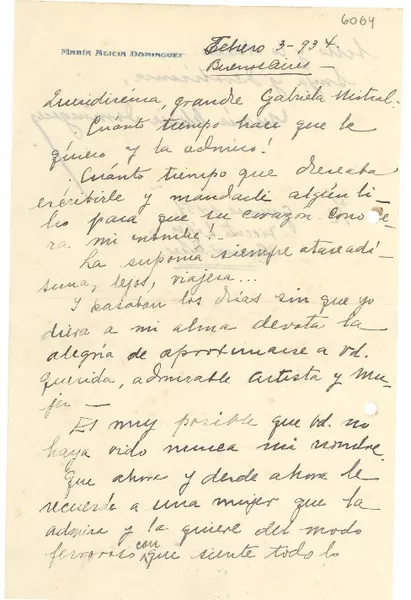 6064
MARÍA ALICIA DOMINGUEZ
Febrero 3-934
Buenos Aires -
Queridísima, grande Gabriela Mistral:
Cuánto tiempo hace que la
quiero y la admiro!
Cuánto tiempo que deseaba
escribirle y mandarle algún li-
bro para que su corazón conocie-
ra mi nombre!
La suponía siempre atareadí-
sima, lejos, viajera...
Y pasaban los días sin que yo
diera a mi alma devota la
alegría de aproximarse a Vd.
querida, admirable Artista y Mu-
jer -
Es muy posible que Vd. no
haya oído nunca mi nombre.
Que ahora y desde ahora le
recuerde a una mujer que la
admira y la quiere del modo
fervoroso con que siente todo lo